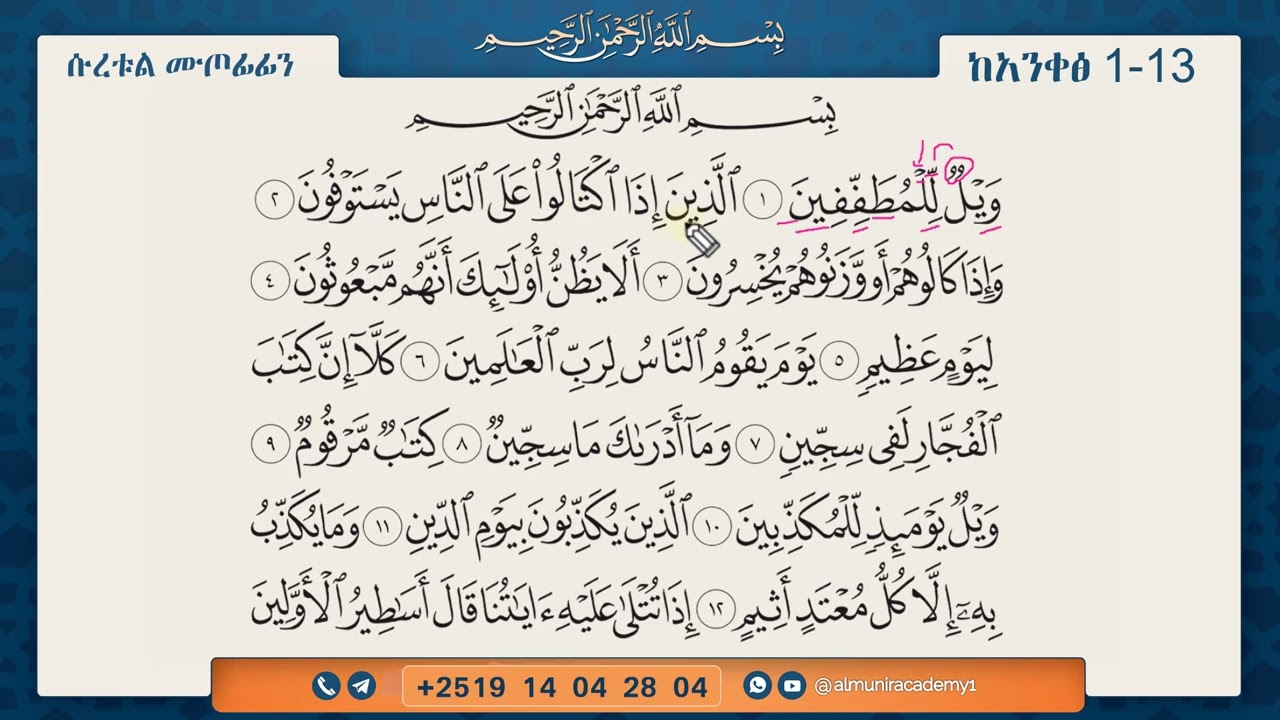 بِسْمِ ٱللَّهِ ٱلرَّحْمَٰنِ ٱلرَّحِيمِ
ሱረቱል ሙጦፊፊን
ከአንቀፅ 1-13
بِسْمِ ٱللَّهِ ٱلرَّحْمَٰنِ ٱلرَّحِيمِ
وَيْلٌ لِّلْمُطَفِّفِينَ ١ ٱلَّذِينَ إِذَا ٱكْتَالُوا۟ عَلَى ٱلنَّاسِ يَسْتَوْفُونَ ٢
وَإِذَا كَالُوهُمْ أَو وَّزَنُوهُمْ يُخْسِرُونَ ٣ أَلَا يَظُنُّ أُو۟لَـٰٓئِكَ أَنَّهُم مَّبْعُوثُونَ ٤
لِيَوْمٍ عَظِيمٍ ٥ يَوْمَ يَقُومُ ٱلنَّاسُ لِرَبِّ ٱلْعَـٰلَمِينَ ٦ كَلَّآ إِنَّ كِتَـٰبَ
ٱلْفُجَّارِ لَفِى سِجِّينٍ ٧ وَمَآ أَدْرَىٰكَ مَا سِجِّينٌ ٨ كِتَـٰبٌ مَّرْقُومٌ ٩
وَيْلٌ يَوْمَئِذٍ لِّلْمُكَذِّبِينَ ١٠ ٱلَّذِينَ يُكَذِّبُونَ بِيَوْمِ ٱلدِّينِ ١١ وَمَا يُكَذِّبُ
بِهِۦٓ إِلَّا كُلُّ مُعْتَدٍ أَثِيمٍ ١٢ إِذَا تُتْلَىٰ عَلَيْهِ ءَايَـٰتُنَا قَالَ أَسَـٰطِيرُ ٱلْأَوَّلِينَ
+2519 14 04 28 04
@almuniracademy1